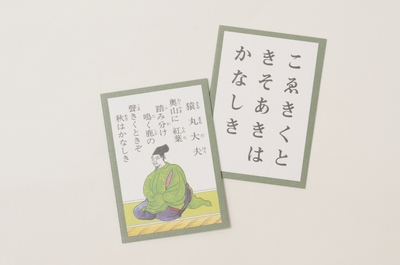 猿丸大夫
奥山に 紅葉
踏み分け
鳴く鹿の
聲きくときぞ
秋はかなしき
こゑきくと
きそあきは
かなしき